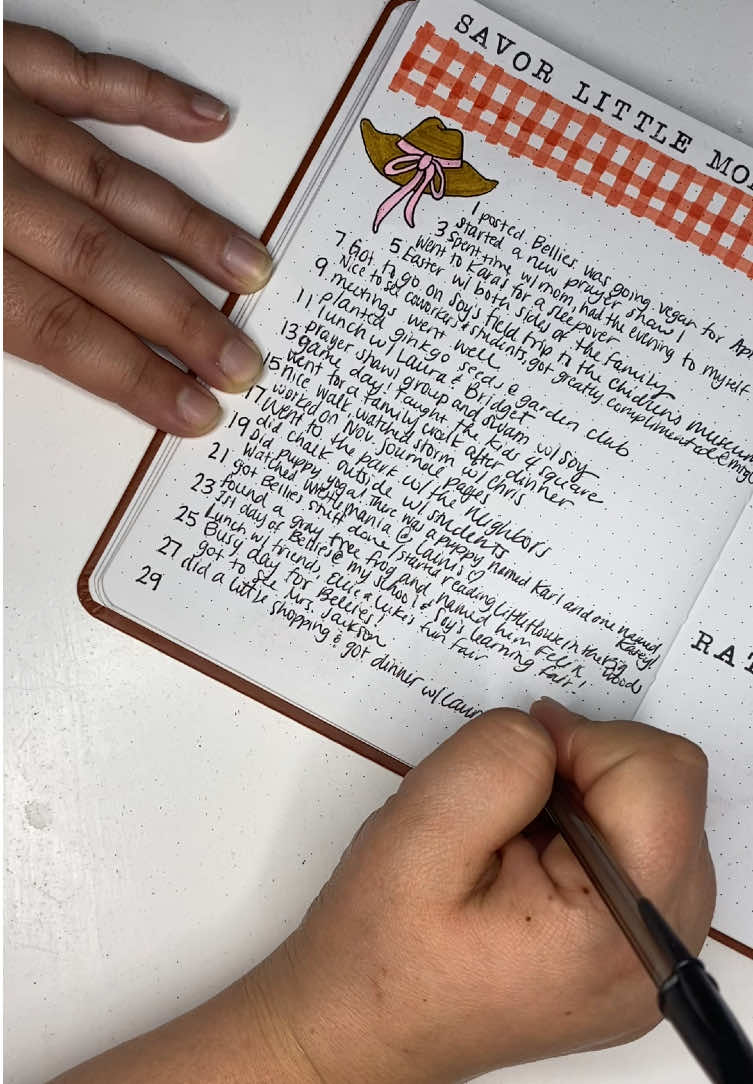 SAVOR LITTLE MO
1 posted Bellies was going vegan for Apr
started a new prayer shawl
3 spent time w/ mom, had the evening to myself
went to Kara's for a sleepover
5 Easter w/ both sides of the family
7 Got to go on Soy's field trip to the children's museum
Nice to see coworkers & students, got greatly complimented @
9 meetings went well
planted ginkgo seeds @ garden club
11 lunch w/ Laura & Bridget
prayer shawl group and swam w/ Soy
13 game day! taught the kids 4 square
went for a family walk after dinner
15 nice walk, watched storm w/ Chris
worked on Nov. journal pages
17 Went to the park w/ the neighbors
did chalk outside w/ students
19 Did puppy yoga! There was a puppy named Karl and one named Karey!
Watched Wrestlemania @ ♡
21 got Bellies stuff done / started reading Little House in the Big Woods
23 found a gray tree frog and named him Felix
1st day of Bellies @ my school & Soy's learning fair!
25 Lunch w/ friends, Ellie & Luke's fun fair
Busy day for Bellies!
27 got to see Mrs. Jackson
29 did a little shopping & got dinner w/ Laur
RAT